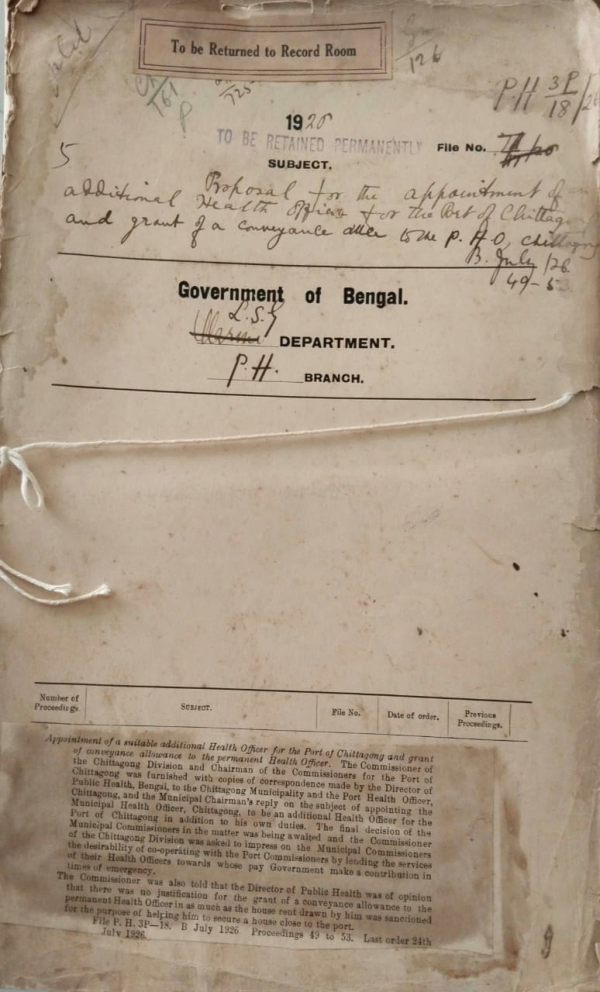 To be Returned to Record Room
126
161
P
725
P H 3P/18/26
1926
TO BE RETAINED PERMANENTLY
File No.
SUBJECT.
5
Proposal for the appointment of an
additional Health Officer for the Port of Chittagong
and grant of a conveyance allce to the P. H. O, Chittagong
B. July /26
49-53
Government of Bengal.
L.S.G
Marine DEPARTMENT.
P.H. BRANCH.
Number of Proceedings.
SUBJECT.
File No.
Date of order.
Previous Proceedings.
Appointment of a suitable additional Health Officer for the Port of Chittagong and grant
of conveyance allowance to the permanent Health Officer. The Commissioner of
the Chittagong Division and Chairman of the Commissioners for the Port of
Chittagong was furnished with copies of correspondence made by the Director of
Public Health, Bengal, to the Chittagong Municipality and the Port Health Officer,
Chittagong, and the Municipal Chairman's reply on the subject of appointing the
Municipal Health Officer, Chittagong, to be an additional Health Officer for the
Port of Chittagong in addition to his own duties. The final decision of the
Municipal Commissioners in the matter was being awaited and the Commissioner
of the Chittagong Division was asked to impress on the Municipal Commissioners
the desirability of co-operating with the Port Commissioners by lending the services
of their Health Officers towards whose pay Government make a contribution in
times of emergency.
The Commissioner was also told that the Director of Public Health was of opinion
that there was no justification for the grant of a conveyance allowance to the
permanent Health Officer in as much as the house rent drawn by him was sanctioned
for the purpose of helping him to secure a house close to the port.
File P. H. 3P—18. B July 1926. Proceedings 49 to 53. Last order 24th
July 1926.